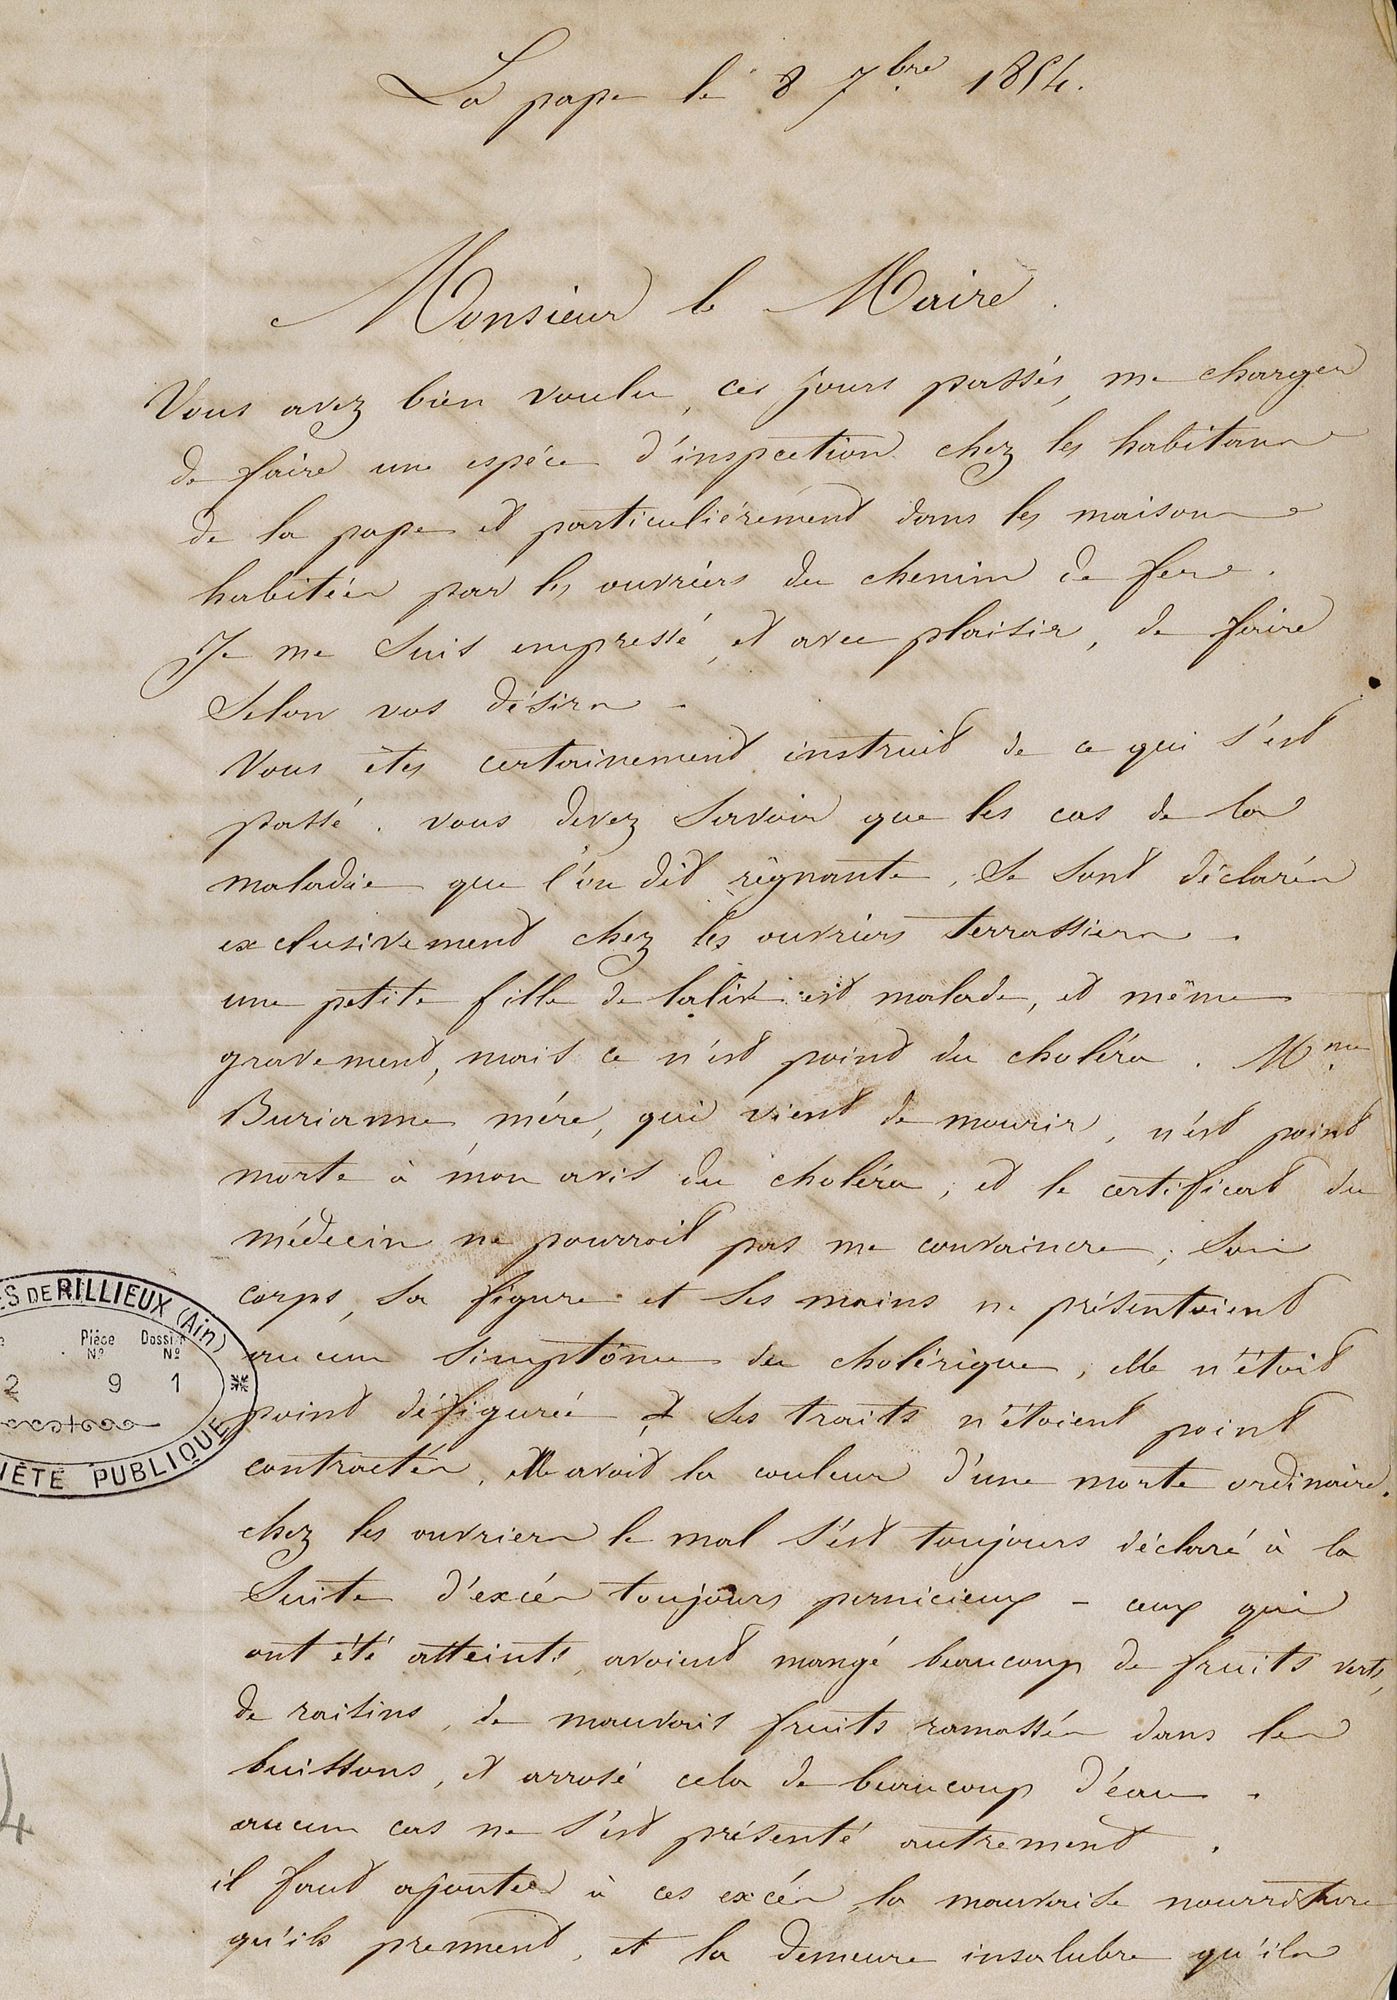 La pape le 8 7bre 1854.
Monsieur le Maire.
Vous avez bien voulu, ces jours passés, me charger
de faire une espéce d'inspection chez les habitans
de la pape et particuliérement dans les maisons
habitées par les ouvriers du chemin de fer.
Je me suis empressé, et avec plaisir, de faire
selon vos désirs.
Vous êtes certainement instruit de ce qui s'est
passé. vous devez savoir que les cas de la
maladie que l'on dit régnante, se sont déclarés
exclusivement chez les ouvriers terrassiers.
une petite fille de est malade, et même
gravement, mais ce n'est point du choléra. Mme
Burianne mére, qui vient de mourir, n'est point
morte à mon avis du choléra, et le certificat du
médecin ne pourroit pas me convaincre; son
corps, sa figure et ses mains ne présentoient
aucun simptôme du cholérique, elle n'étoit
point défigurée et ses traits n'étoient point
contractés, elle avoit la couleur d'une morte ordinaire.
chez les ouvriers le mal s'est toujours déclaré à la
suite d'excés toujours pernicieux - ceux qui
ont été atteints, avoient mangé beaucoup de fruits verts,
de raisins, de mauvais fruits ramassés dans les
buissons, et arrosé cela de beaucoup d'eau.
aucun cas ne s'est présenté autrement.
il faut ajouter à ces excés, la mauvaise nourriture
qu'ils prennent, et la demeure insalubre qu'ils
ES DE RILLIEUX (Ain)
Piéce Dossier
No No
2 9 1
IÉTÉ PUBLIQUE
4